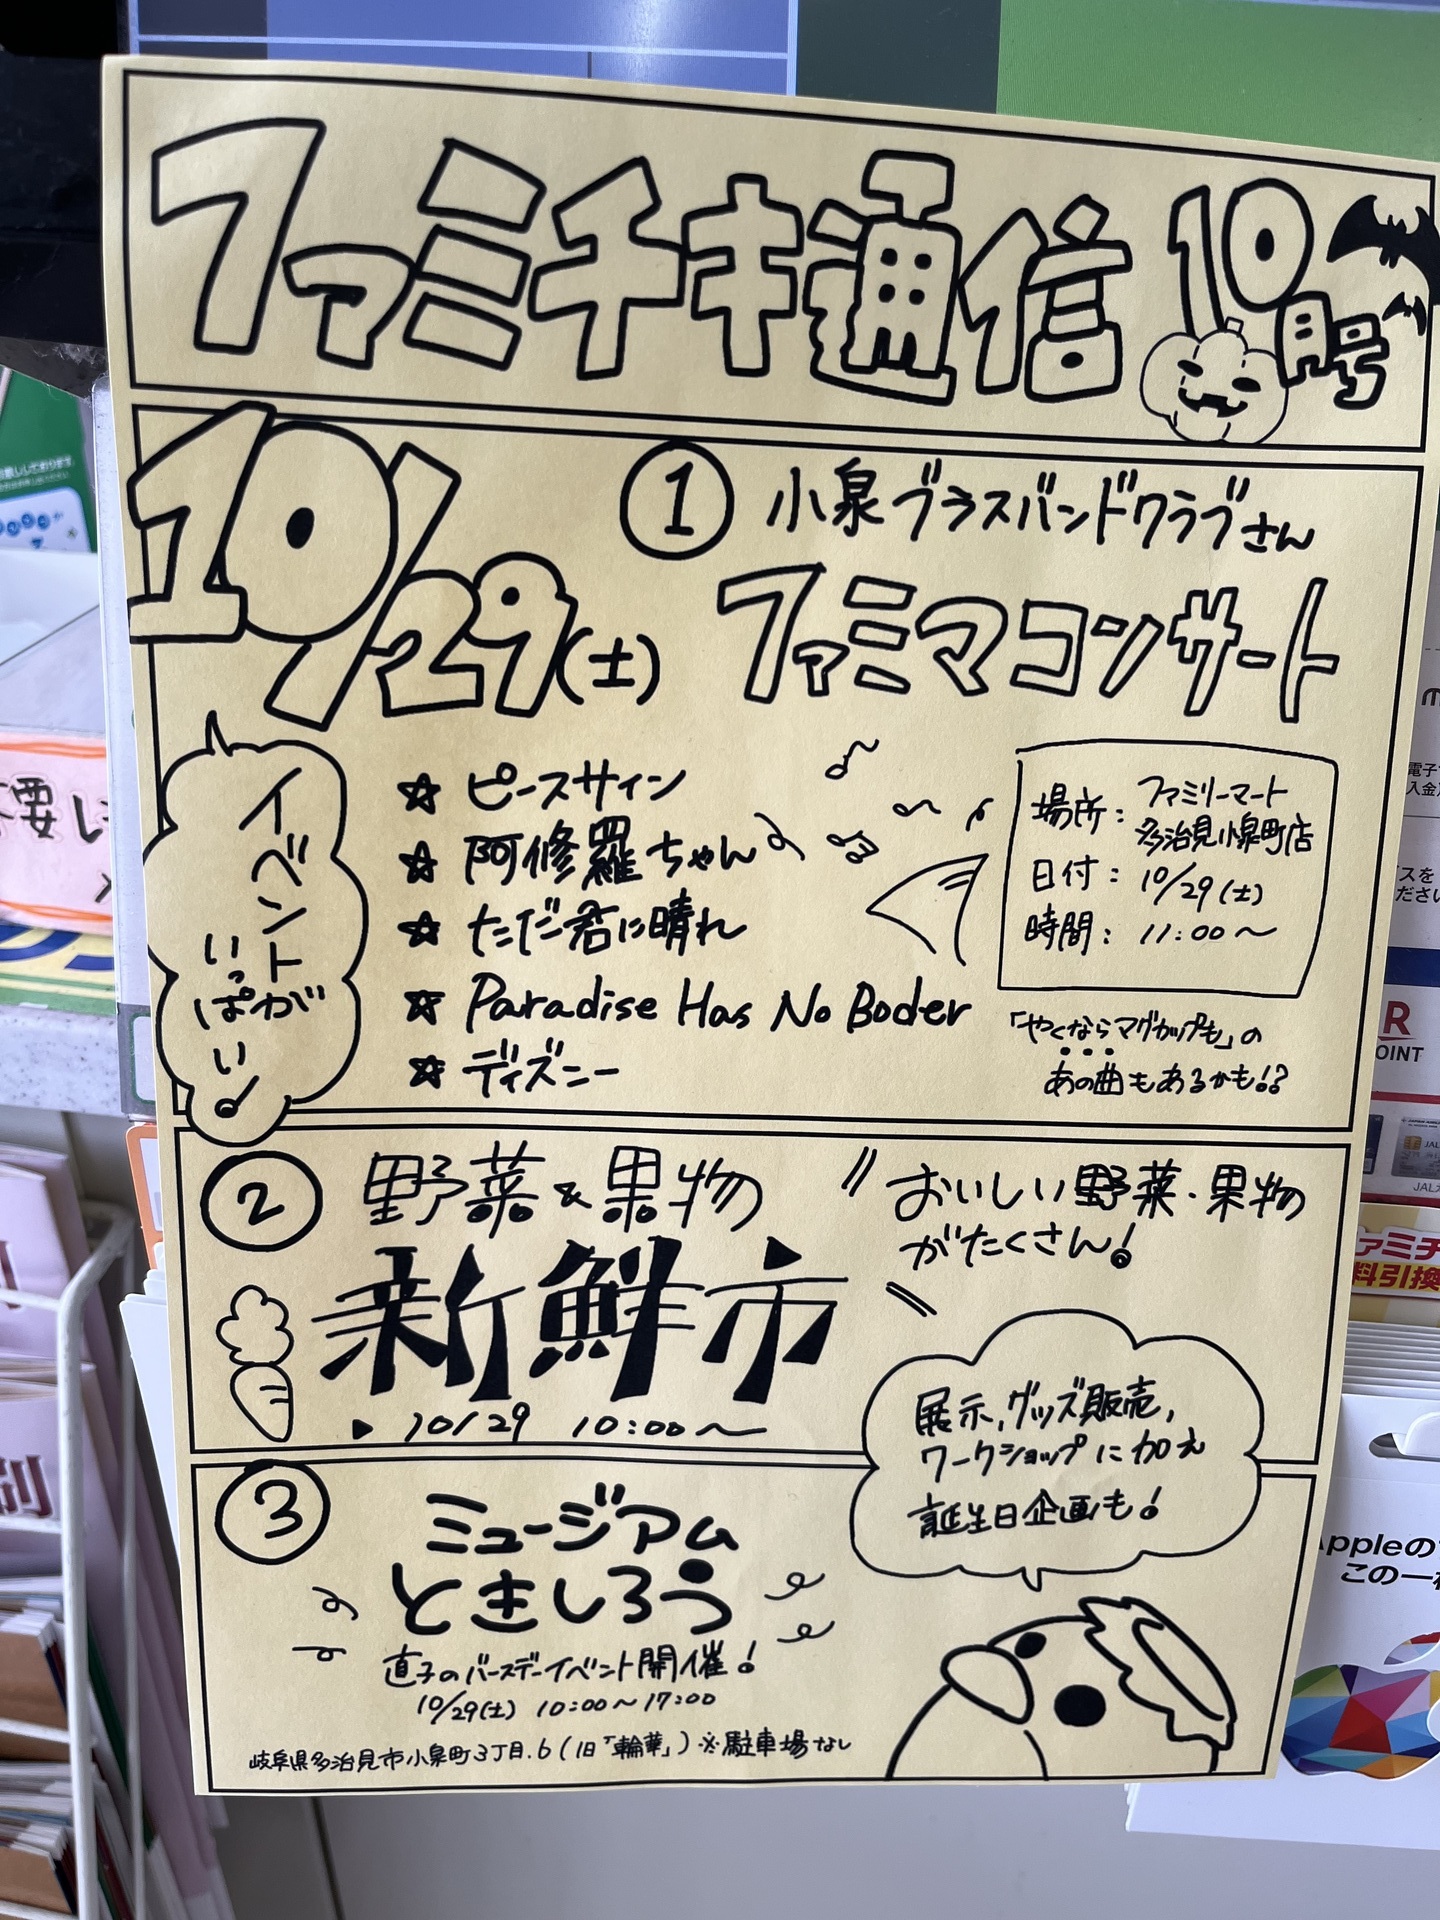 ファミチキ通信 10月号
10/29(土)
① 小泉ブラスバンドクラブさん
ファミマコンサート
イベントがいっぱい♪
☆ ピースサイン
☆ 阿修羅ちゃん
☆ ただ君に晴れ
☆ Paradise Has No Boder
☆ ディズニー
場所: ファミリーマート
多治見小泉町店
日付: 10/29(土)
時間: 11:00〜
「やくならマグカップも」の
あの曲もあるかも!?
② 野菜&果物
新鮮市
▶ 10/29 10:00〜
おいしい野菜・果物
がたくさん!
③ ミュージアム
ときしろう
直子のバースデーイベント開催!
10/29(土) 10:00〜17:00
岐阜県多治見市小泉町3丁目.6(旧「輪華」)※駐車場なし
展示,グッズ販売,
ワークショップに加え
誕生日企画も!
Appleの
この一
OINT
JAL
料引換